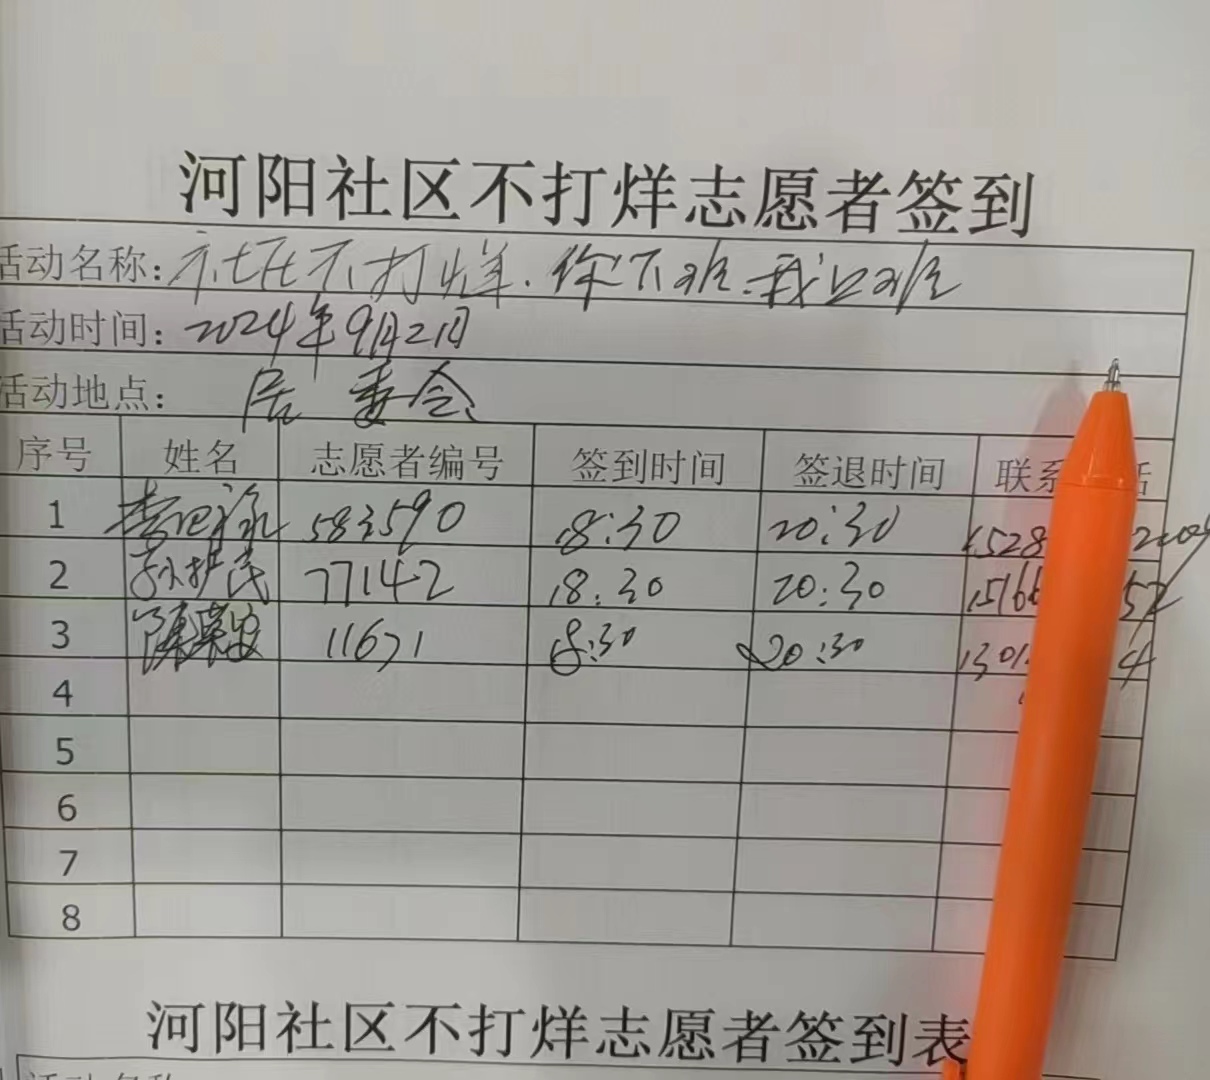 河阳社区不打烊志愿者签到
活动名称: 社区不打烊.你下班.我
活动时间: 2024年9月2日
活动地点: 居委会
序号 姓名 志愿者编号 签到时间 签退时间 联系 话
1 583590 18:30 20:30 1528
2 孙护民 77142 18:30 20:30 1516 52
3 陈荣安 11671 8:30 20:30 1301 4
4
5
6
7
8
河阳社区不打烊志愿者签到表